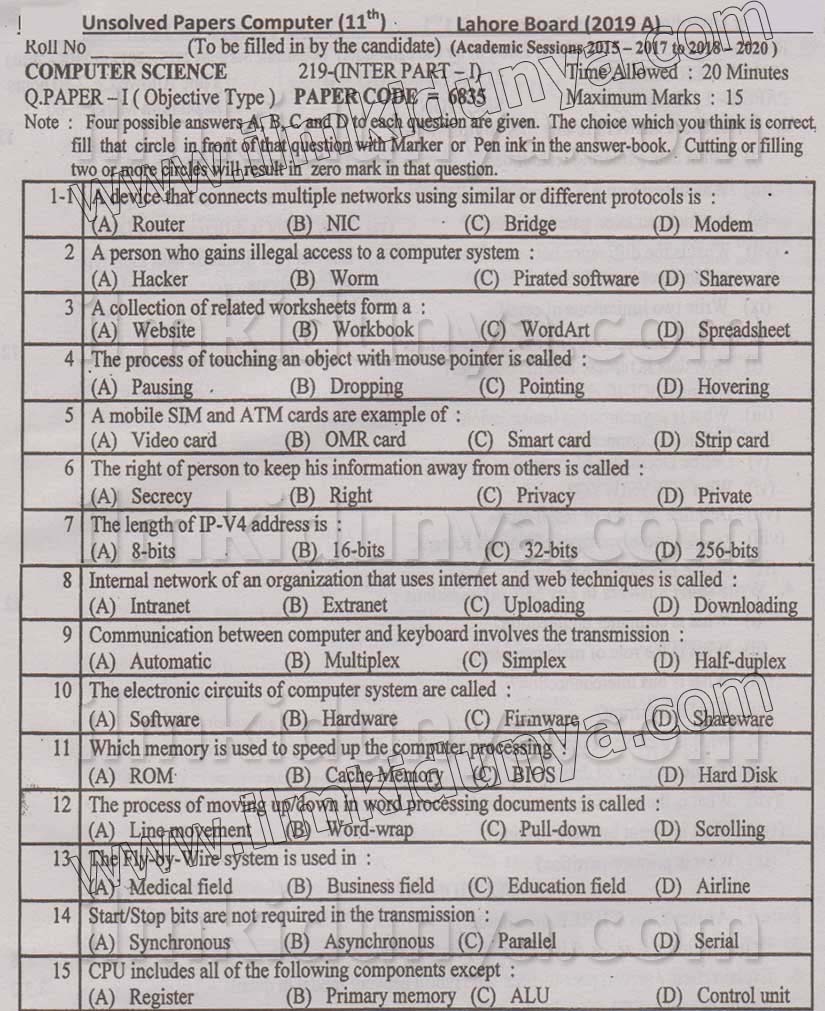 Unsolved Papers Computer (11th) Lahore Board (2019 A)
Roll No __________ (To be filled in by the candidate) (Academic Sessions 2015 – 2017 to 2018 – 2020 )
COMPUTER SCIENCE 219-(INTER PART – I) Time Allowed : 20 Minutes
Q.PAPER – I ( Objective Type ) PAPER CODE = 6835 Maximum Marks : 15
Note : Four possible answers A, B, C and D to each question are given. The choice which you think is correct,
fill that circle in front of that question with Marker or Pen ink in the answer-book. Cutting or filling
two or more circles will result in zero mark in that question.
1-1 A device that connects multiple networks using similar or different protocols is :
(A) Router (B) NIC (C) Bridge (D) Modem
2 A person who gains illegal access to a computer system :
(A) Hacker (B) Worm (C) Pirated software (D) Shareware
3 A collection of related worksheets form a :
(A) Website (B) Workbook (C) WordArt (D) Spreadsheet
4 The process of touching an object with mouse pointer is called :
(A) Pausing (B) Dropping (C) Pointing (D) Hovering
5 A mobile SIM and ATM cards are example of :
(A) Video card (B) OMR card (C) Smart card (D) Strip card
6 The right of person to keep his information away from others is called :
(A) Secrecy (B) Right (C) Privacy (D) Private
7 The length of IP-V4 address is :
(A) 8-bits (B) 16-bits (C) 32-bits (D) 256-bits
8 Internal network of an organization that uses internet and web techniques is called :
(A) Intranet (B) Extranet (C) Uploading (D) Downloading
9 Communication between computer and keyboard involves the transmission :
(A) Automatic (B) Multiplex (C) Simplex (D) Half-duplex
10 The electronic circuits of computer system are called :
(A) Software (B) Hardware (C) Firmware (D) Shareware
11 Which memory is used to speed up the computer processing :
(A) ROM (B) Cache Memory (C) BIOS (D) Hard Disk
12 The process of moving up/down in word processing documents is called :
(A) Line movement (B) Word-wrap (C) Pull-down (D) Scrolling
13 The Fly-by-Wire system is used in :
(A) Medical field (B) Business field (C) Education field (D) Airline
14 Start/Stop bits are not required in the transmission :
(A) Synchronous (B) Asynchronous (C) Parallel (D) Serial
15 CPU includes all of the following components except :
(A) Register (B) Primary memory (C) ALU (D) Control unit
www.ilmkidunya.com
www.ilmkidunya.com
ilmkidunya.com
ilmkidunya.com
ilmkidunya.com
ilmkidunya.com
ilmkidunya.com